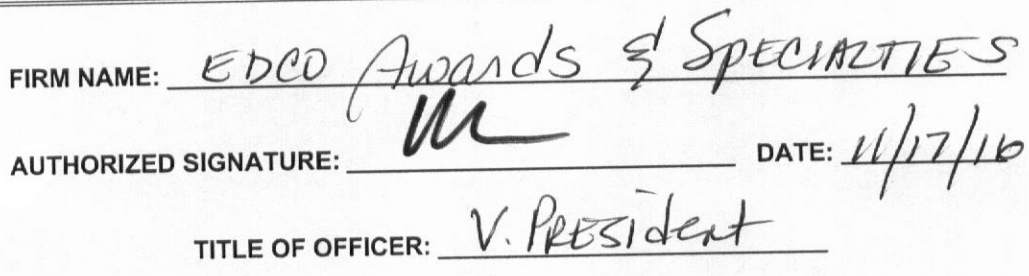 FIRM NAME: EDCO Awards & SPECIALTIES
AUTHORIZED SIGNATURE: DATE: 11/17/16
TITLE OF OFFICER: V. PRESident